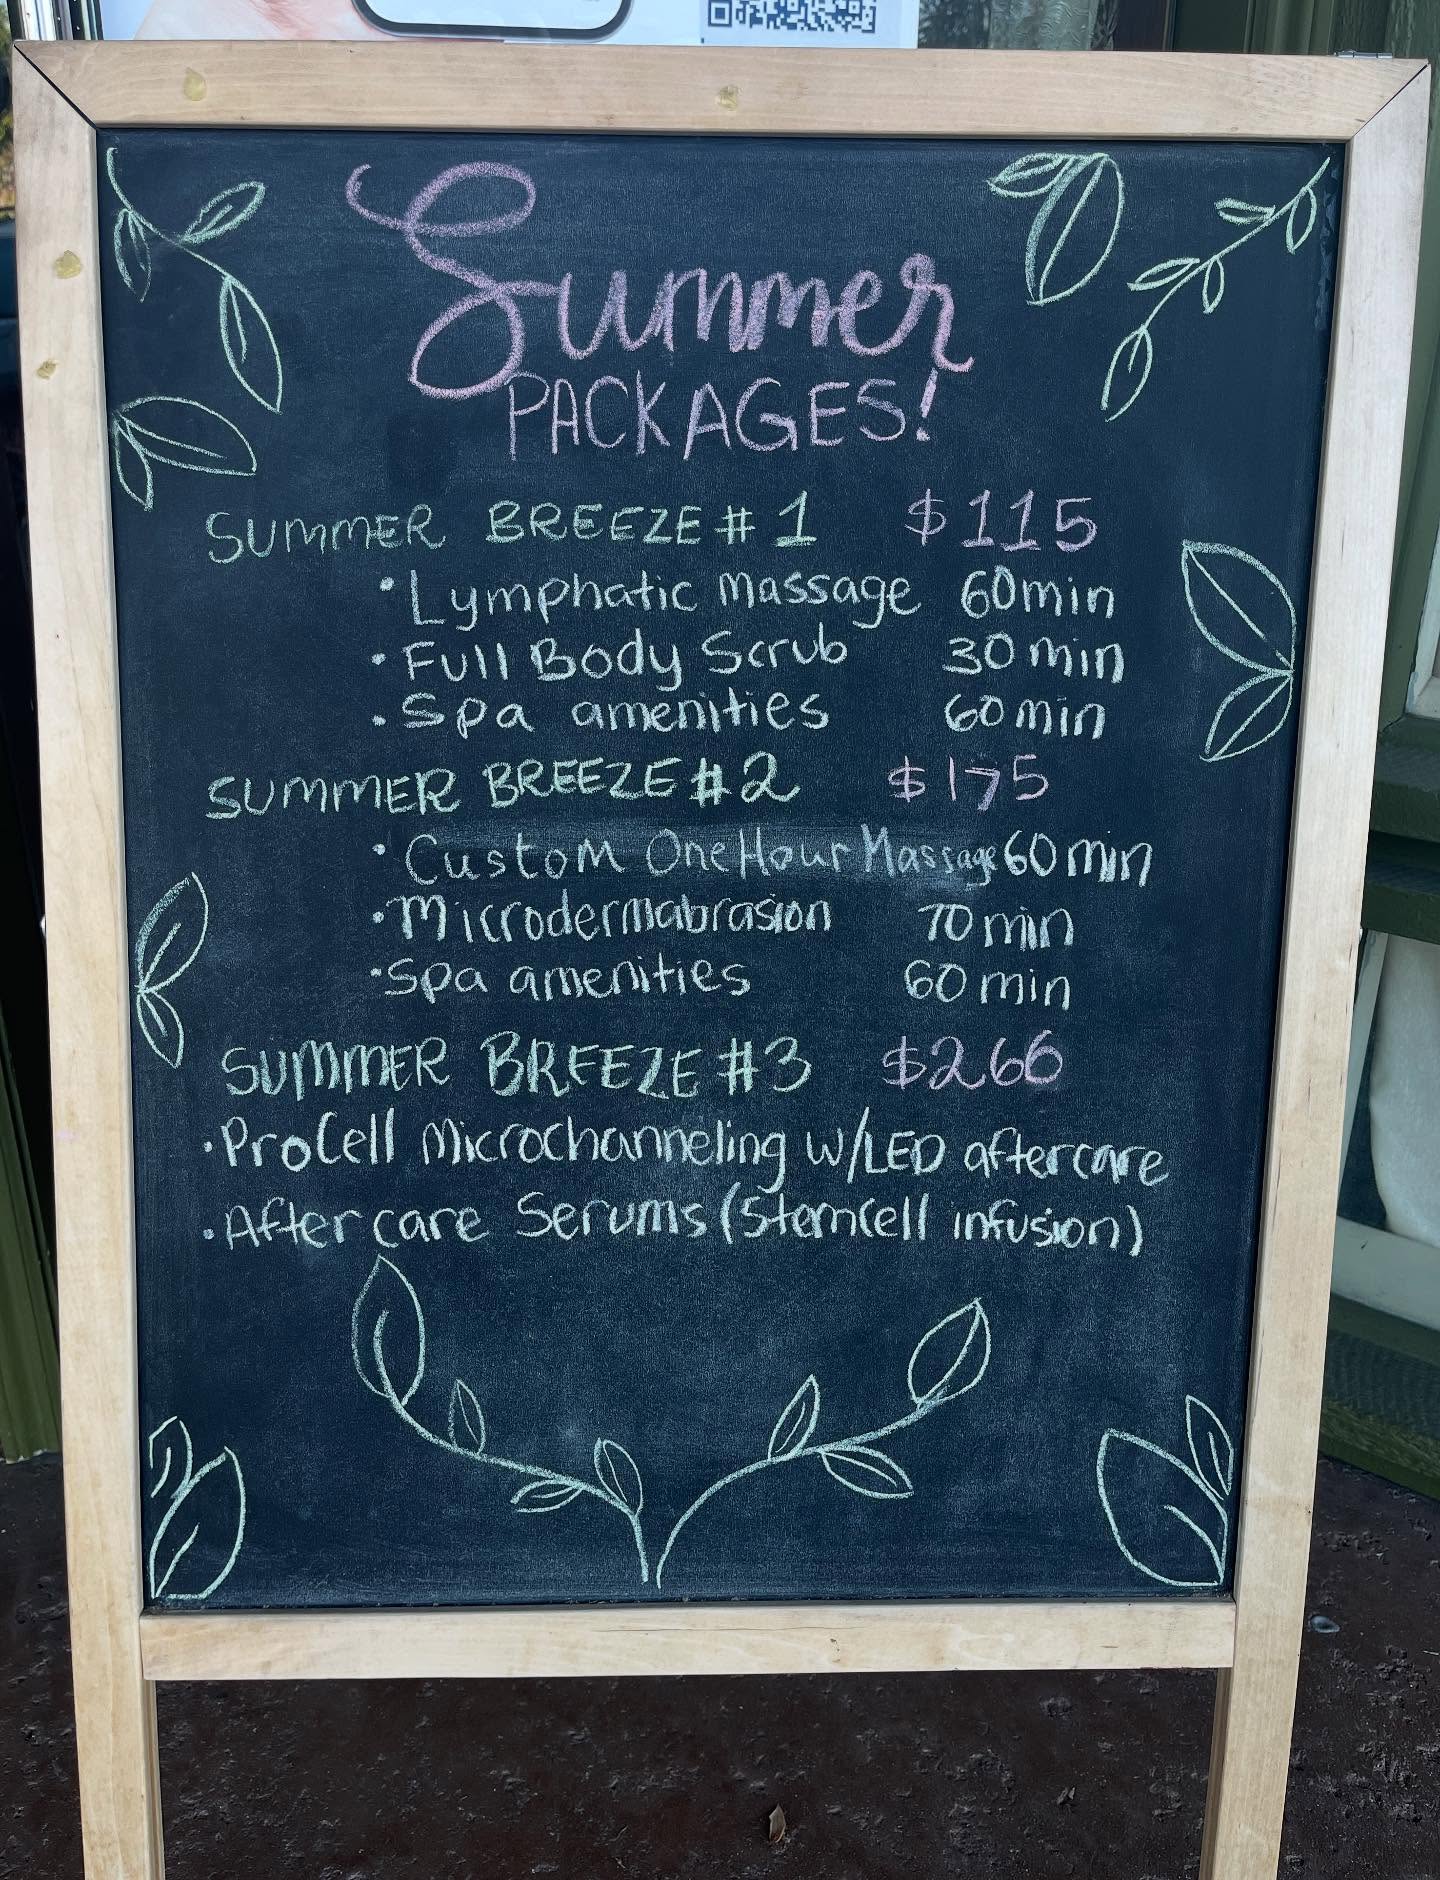 Summer
PACKAGES!
SUMMER BREEZE #1 $115
• Lymphatic Massage 60min
• Full Body Scrub 30 min
• Spa amenities 60min
SUMMER BREEZE #2 $175
• Custom One Hour Massage 60 min
• Microdermabrasion 70 min
• Spa amenities 60 min
SUMMER BREEZE #3 $266
• ProCell Microchanneling w/LED aftercare
• After care Serums (Stemcell infusion)